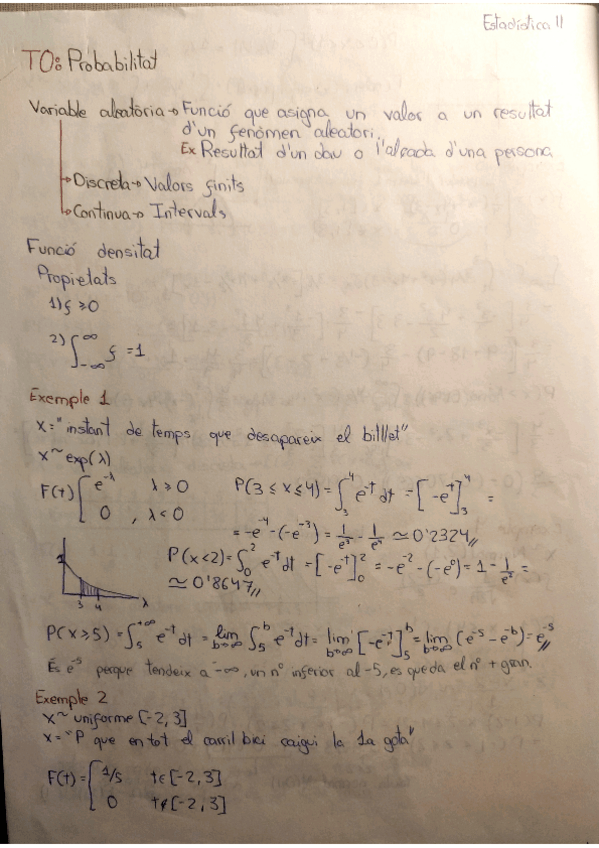 Estadística II
T0: Probabilitat
Variable aleatòria → Funció que asigna un valor a un resultat
d'un fenòmen aleatori.
Ex Resultat d'un dau o l'alçada d'una persona
→ Discreta → Valors finits
→ Continua → Intervals
Funció densitat
Propietats
1) f ≥ 0
2) ∫_{-∞}^{∞} f = 1
Exemple 1
X = "instant de temps que desapareix el bitllet"
X ~ exp(λ)
F(t) { e^{-λ} λ ≥ 0
0 , λ < 0
P(3 ≤ x ≤ 4) = ∫_3^4 e^{-t} dt = [-e^{-t}]_3^4 =
= -e^{-4} - (-e^{-3}) = 1/e^3 - 1/e^4 ≃ 0'2324 //
P(x<2) = ∫_0^2 e^{-t} dt = [-e^{-t}]_0^2 = -e^{-2} - (-e^0) = 1 - 1/e^2 =
≃ 0'8647 //
1
3 4 λ
P(x ≥ 5) = ∫_5^{+∞} e^{-t} dt = lim_{b→∞} ∫_5^b e^{-t} dt = lim_{b→∞} [-e^{-t}]_5^b = lim_{b→∞} (e^{-5} - e^{-b}) = e^{-5} //
És e^{-5} perque tendeix a -∞, un nº inferior al -5, es queda el nº + gran.
Exemple 2
X ~ uniforme [-2, 3]
X = "P que en tot el carril bici caigui la 1a gota"
F(t) = { 1/5 t ∈ [-2, 3]
0 t ∉ [-2, 3]